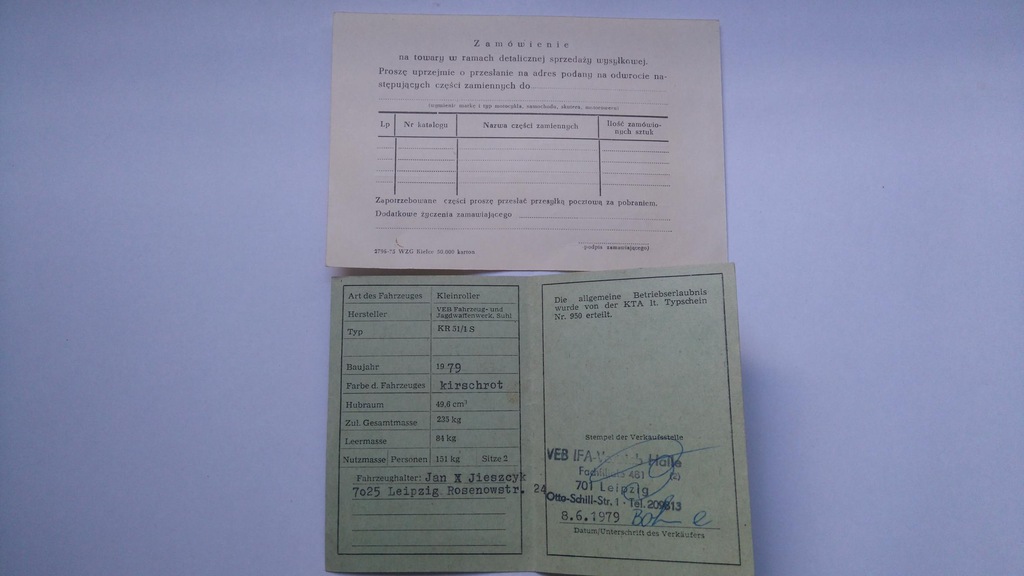 Zamówienie
na towary w ramach detalicznej sprzedaży wysyłkowej.
Proszę uprzejmie o przesłanie na adres podany na odwrocie na-
stępujących części zamiennych do
(wymienić markę i typ motocykla, samochodu, skutera, motoroweru)
Lp Nr katalogu Nazwa części zamiennych Ilość zamówio-
nych sztuk
Zapotrzebowane części proszę przesłać przesyłką pocztową za pobraniem.
Dodatkowe życzenia zamawiającego
(podpis zamawiającego)
2798-73 WZG Kielce 50.000 karton.
Art des Fahrzeuges Kleinroller
Hersteller VEB Fahrzeug- und
Jagdwaffenwerk, Suhl
Typ KR 51/1 S
Baujahr 1979
Farbe d. Fahrzeuges kirschrot
Hubraum 49,6 cm³
Zul. Gesamtmasse 235 kg
Leermasse 84 kg
Nutzmasse Personen 151 kg Sitze 2
Fahrzeughalter: Jan X Jieszcyk
7025 Leipzig Rosenowstr. 24
Die allgemeine Betriebserlaubnis
wurde von der KTA lt. Typschein
Nr. 950 erteilt.
Stempel der Verkaufsstelle
VEB IFA Halle
481 (c)
701 Leipzig
Otto-Schill-Str. 1 · Tel. 209813
8.6.1979
Datum/Unterschrift des Verkäufers